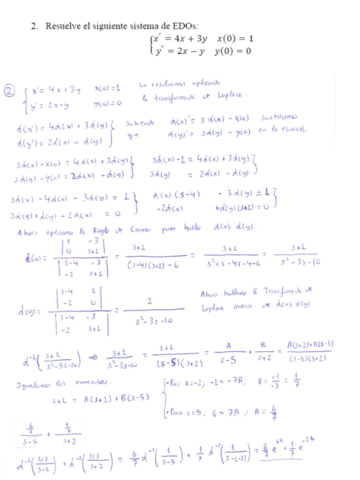 2. Resuelve el siguiente sistema de EDOs:
{x' = 4x + 3y   x(0) = 1
{y' = 2x − y   y(0) = 0
② {x' = 4x + 3y   x(0) = 1   Lo resolvemos aplicando
{y' = 2x - y   y(0) = 0   la transformada de Laplace.
L(x') = 4L(x) + 3L(y) } Sabiendo L(x)' = sL(x) - x(0) } Sustituimos
L(y') = 2L(x) - L(y) } que L(y)' = sL(y) - y(0) } en la ecuación
sL(x) - x(0) = 4L(x) + 3L(y) } sL(x) - 1 = 4L(x) + 3L(y) }
sL(y) - y(0) = 2L(x) - L(y) } sL(y) = 2L(x) - L(y) }
sL(x) - 4L(x) - 3L(y) = 1 } L(x)(s-4) - 3L(y) = 1 }
sL(y) + L(y) - 2L(x) = 0 } -2L(x) + L(y)(s+1) = 0 }
Ahora aplicamos la Regla de Cramer para hallar L(x), L(y):
L(x) = |1 -3; 0 s+1| / |s-4 -3; -2 s+1| = s+1 / (s-4)(s+1)-6 = s+1 / s²+s-4s-4-6 = s+1 / s²-3s-10
L(y): |s-4 1; -2 0| / |s-4 -3; -2 s+1| = 2 / s²-3s-10   Ahora hallamos la Transformada de Laplace inversa de L(x), L(y)
L⁻¹(s+1 / s²-3s-10) ⇒ s+1 / s²-3s-10 = s+1 / (s-5)(s+2) = A / s-5 + B / s+2 = A(s+2)+B(s-5) / (s-5)(s+2)
Igualamos los numeradores:
s+1 = A(s+2) + B(s-5)   {· Para s=-2, -1 = -7B; B = -1/-7 = 1/7
{· Para s=5; 6 = 7A; A = 6/7
6/7 / s-5 + 1/7 / s+2
L⁻¹(6/7 / s-5) + L⁻¹(1/7 / s+2) = 6/7 L⁻¹(1 / s-5) + 1/7 L⁻¹(1 / s-(-2)) = 6/7 e^5t + 1/7 e^-2t